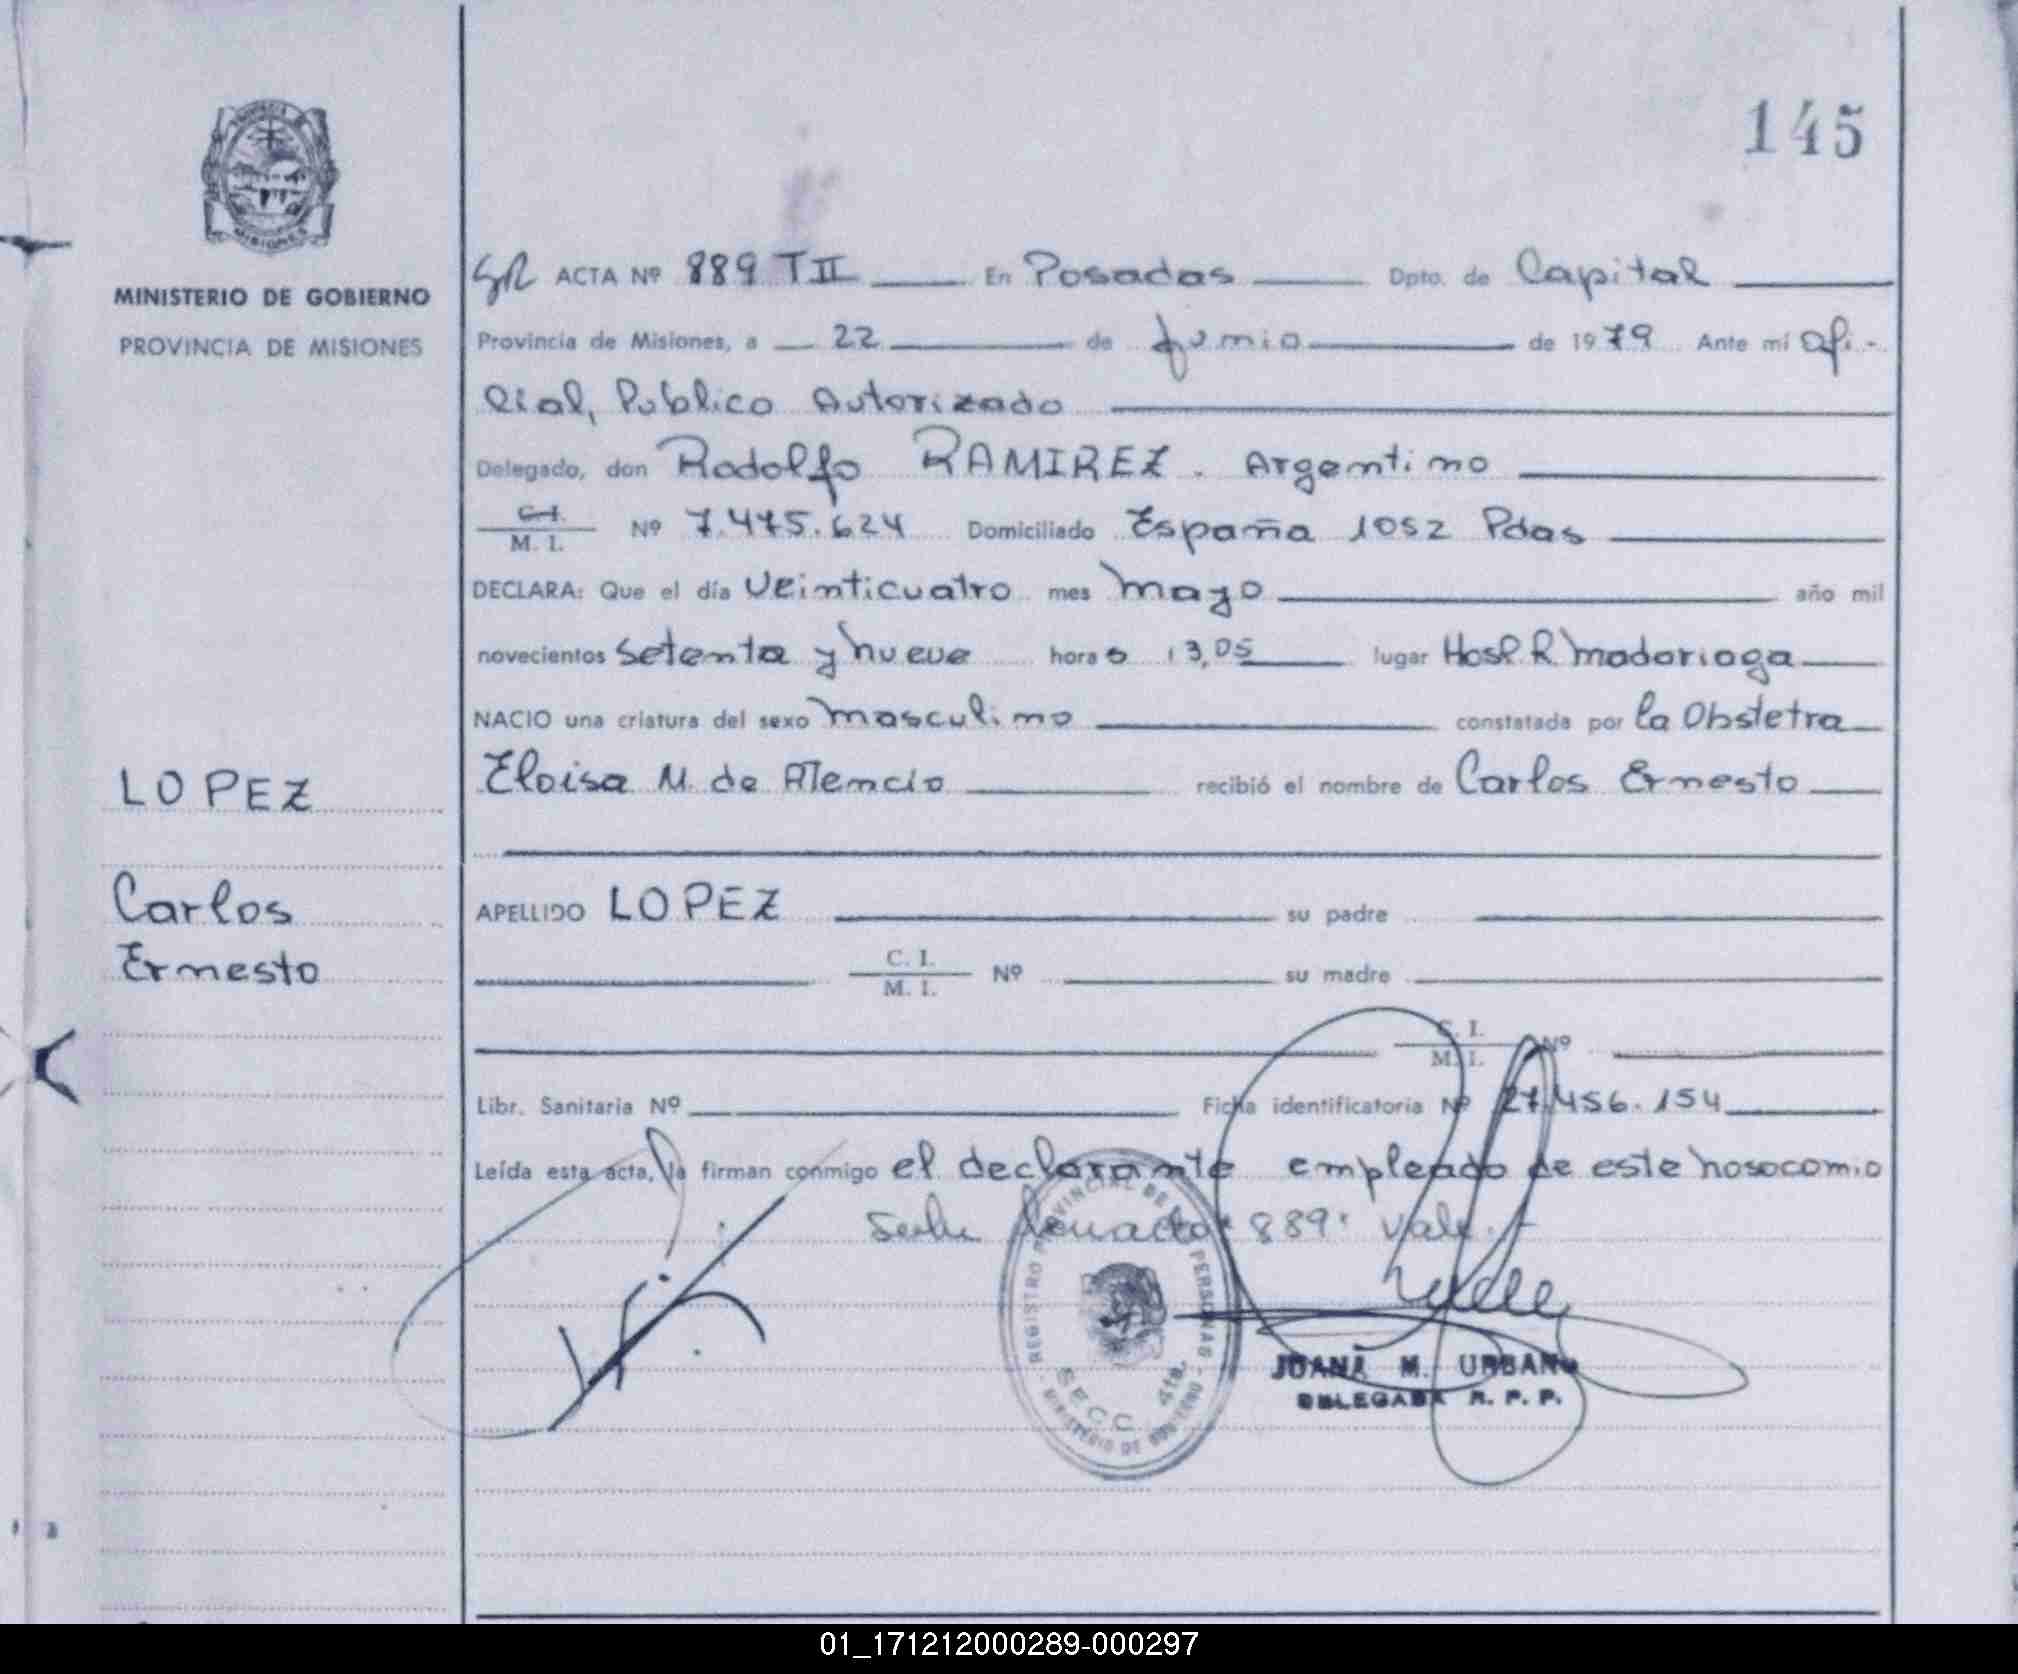 145
PROVINCIA DE
MISIONES
MINISTERIO DE GOBIERNO
PROVINCIA DE MISIONES
ACTA Nº 889 T II En Posadas Dpto. de Capital
Provincia de Misiones, a 22 de Junio de 1979 Ante mí Ofi-
cial, Publico Autorizado
Delegado, don Rodolfo RAMIREZ. Argentino
C. I.
M. I. Nº 7.475.624 Domiciliado España 1052 Pdas
DECLARA: Que el día Veinticuatro mes Mayo año mil
novecientos Setenta y Nueve hora s 13,05 lugar Hosp. R. Madariaga
NACIO una criatura del sexo Masculino constatada por la Obstetra
Eloisa M. de Atencio recibió el nombre de Carlos Ernesto
LOPEZ
Carlos
Ernesto
APELLIDO LOPEZ su padre
C. I.
M. I. Nº su madre
C. I.
M. I. Nº
Libr. Sanitaria Nº Ficha identificatoria Nº 27.456.154
Leída esta acta, la firman conmigo el declarante empleado de este nosocomio
889 Vale.-
REGISTRO PROVINCIAL DE LAS PERSONAS
SECC. 4ta.
MINISTERIO DE GOBIERNO
JUANA M. URBANO
DELEGADA R. P. P.
01_171212000289-000297